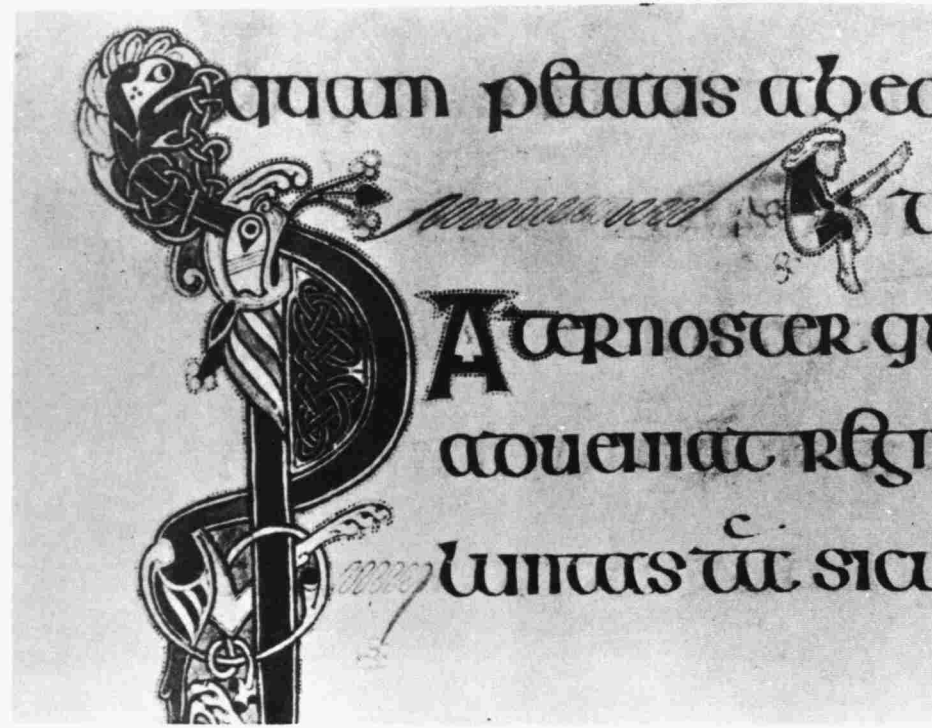 quam petatis abeo
PATERNOSTER qu
adueniat regn
luntas tua sicu